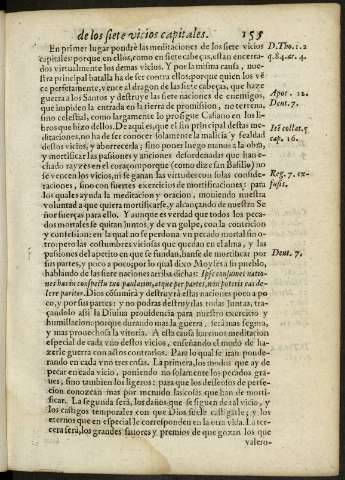 de los siete vicios capitales. 155
En primer lugar pondrè las meditaciones de los siete vicios
capitales: porque en ellos, como en siete cabeças, estan encerra-
dos virtualmente los demas vicios. Y por la misma causa, nues-
tra principal batalla ha de ser contra ellos: porque quien los vé
ce perfetamente, vence al dragon de las siete cabeças, que haze
guerra a los Santos y destruye las siete naciones de enemigos,
que impiden la entrada en la tierra de promission, no terrena,
sino celestial, como largamente lo prosigue Casiano en los li-
bros que hizo dellos. De aqui es, que el fin principal destas me-
ditaciones, no ha de ser conocer solamente la malicia y fealdad
destos vicios, y aborrecerla; sino poner luego manos a la obra,
y mortificar las passiones y aficiones desordenadas que han e-
chado rayzes en el coraçon: porque (como dize san Basilio) no
se vencen los vicios, ni se ganan las virtudes con solas conside-
raciones, sino con fuertes exercicios de mortificaciones: para
los quales ayuda la meditacion y oracion, mouiendo nuestra
voluntad a que quiera mortificarse, y alcançando de nuestro Se
ñor fuerças para ello. Y aunque es verdad que todos los peca-
dos mortales se quitan juntos, y de vn golpe, con la contricion
y confession: en la qual no se perdona vn pecado mortal sin o-
tro: pero las costumbres viciosas que quedan en el alma, y las
passiones del apetito en que se fundan, hanse de mortificar por
sus partes, y poco a poco; por lo qual dixo Moyses a su pueblo,
hablando de las siete naciones arriba dichas: Ipse consumet natio-
nes has in conspectu tuo paulatim, atque per partes, non poteris eas de-
lere pariter. Dios cõsumirà y destruyrà estas naciones poco a po
co, y por sus partes: y no podras destruylas todas juntas, tra-
çandolo assi la Diuina prouidencia para nuestro exercicio y
humillacion: porque durando mas la guerra, será mas segura,
y mas prouechosa la vitoria. A esta causa haremos meditacion
especial de cada vno destos vicios, enseñando el modo de ha-
zerle guerra con actos contrarios. Para lo qual se iran ponde-
rando en cada vno tres cosas. La primera, los modos que ay de
pecar en cada vicio, poniendo no solamente los pecados gra-
ues, sino tambien los ligeros: para que los desseosos de perfe-
cion conozcan mas por menudo las cosas que han de morti-
ficar. La segunda será, los daños que se siguen de tal vicio, y
los castigos temporales con que Dios suele castigarle; y los
eternos que en especial le corresponden en la otra vida. La ter-
cera será, los grandes fauores y premios de que gozan los que
valero-
D. Tho. 1. 2
q. 84. ar. 4.
Apoc. 12.
Deut. 7.
cap. 16.
Reg. 7. ex-
Deut. 7.